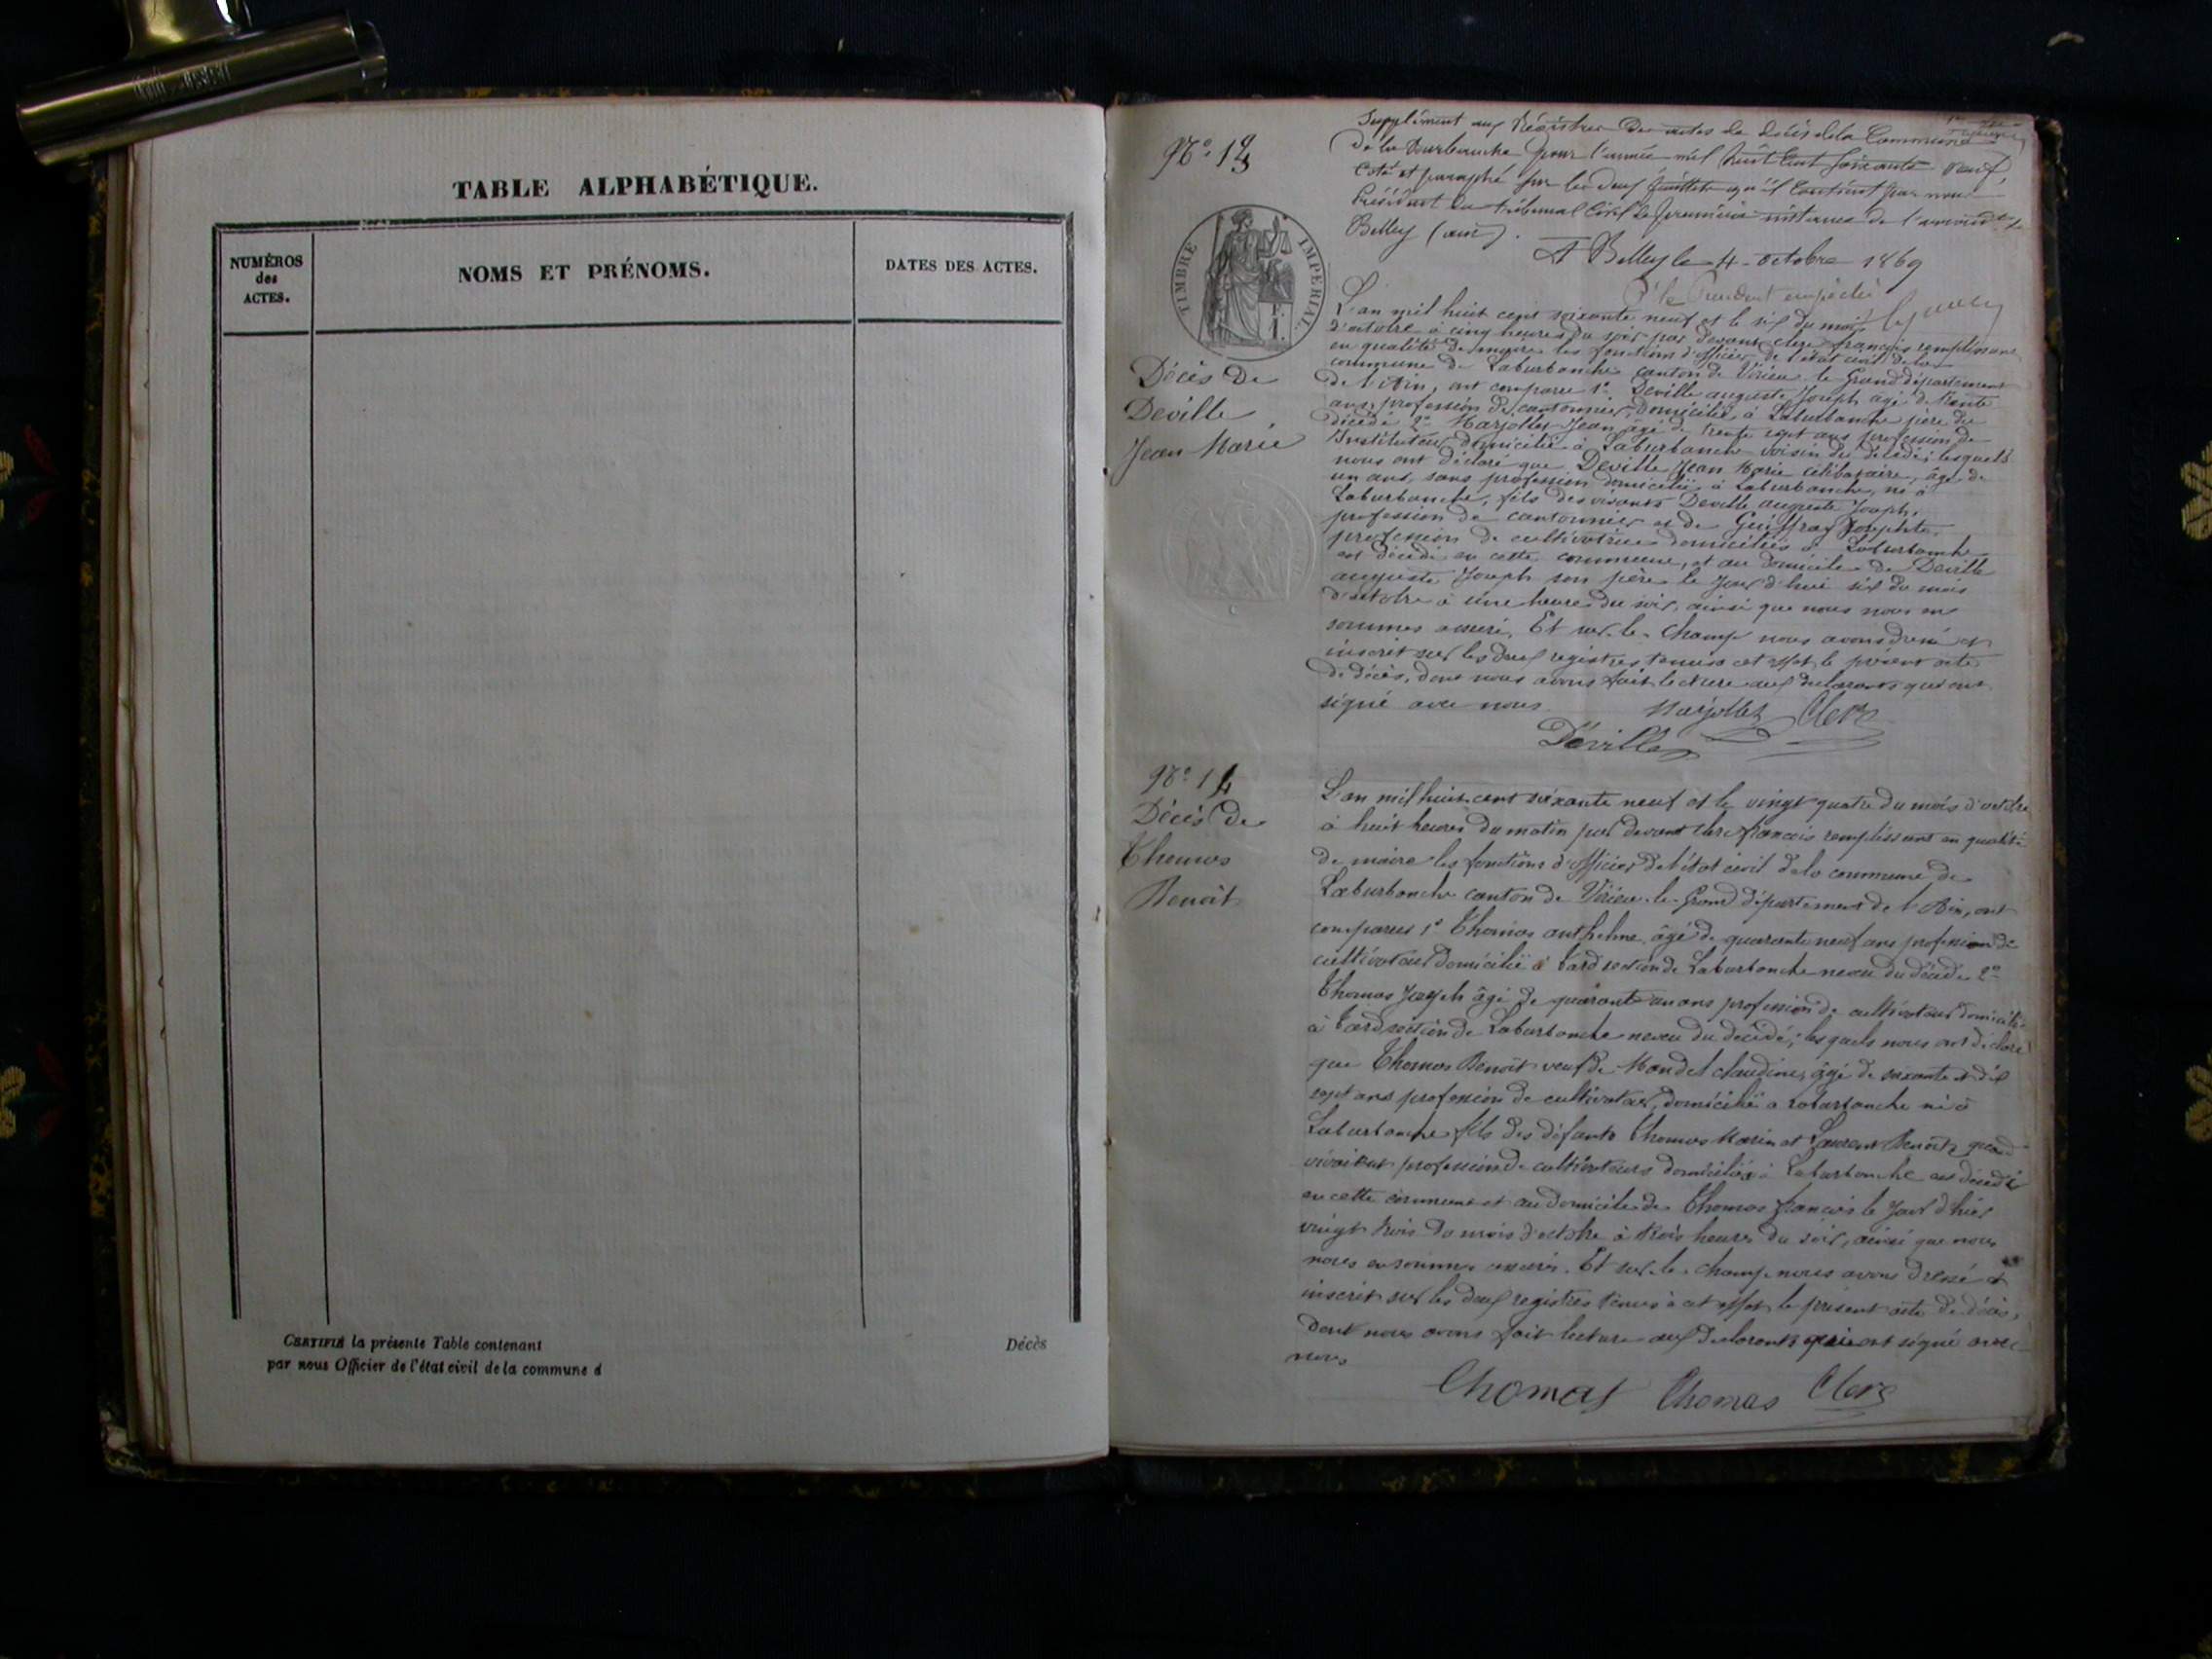 TABLE ALPHABÉTIQUE.
NUMÉROS
des
ACTES.
NOMS ET PRÉNOMS.
DATES DES ACTES.
CERTIFIÉ la présente Table contenant
Décès
par nous Officier de l'état civil de la commune d
N° 13
Supplément aux Régistres des actes de décès de la Commune
De la Burbanche pour l'année mil huit cent soixante neuf,
Coté et paraphé sur les deux feuillets qu'il contient par nous
Président du tribunal Civil de première instance de l'arrondt de
Belley (ain).
A Belley le 4 octobre 1869
Pr le President empêché
TIMBRE IMPERIAL
1 F.
Décès De
Deville
Jean Marie
L'an mil huit cent soixante neuf et le six du mois
d'octobre à cinq heures du soir par devant clerc françois remplissant
en qualité de maire les fonctions d'officier de l'état civil de la
commune de Laburbanche canton de Virieu le Grand département
de l'Ain, ont comparu 1° Deville auguste Joseph âgé de trente
ans profession de cantonnier, domicilié à Laburbanche père du
décédé 2° Marjollet Jean âgé de trente sept ans profession de
Instituteur domicilié à Laburbanche voisin du décédé; lesquels
nous ont déclaré que Deville Jean Marie célibataire, âgé de
un ans, sans profession domicilié à Laburbanche, né à
Laburbanche, fils des vivants Deville auguste Joseph,
profession de cantonnier et de Guiffray Josephte
profession de cultivatrice domiciliés à Laburbanche
est décédé en cette commune, et au domicile de Deville
auguste Joseph son père le Jour d'hui six du mois
d'octobre à une heure du soir, ainsi que nous nous en
sommes assuré. Et sur-le-champ nous avons dressé et
inscrit sur les deux registres tenus à cet effet le présent acte
de décès, dont nous avons fait lecture aux déclarants qui ont
signé avec nous
Marjollet Clerc
Déville
N° 14
Décès De
Thomas
Benoît
L'an mil huit cent soixante neuf et le vingt quatre du mois d'octobre
à huit heures du matin par devant clerc françois remplissant en qualité
de maire les fonctions d'officier de l'état civil de la commune de
Laburbanche canton de Virieu-le-Grand département de l'Ain, ont
comparus 1° Thomas anthelme âgé de quarante neuf ans profession de
cultivateur domicilié à Tard section de Laburbanche neveu du décédé 2°
Thomas Joseph âgé de quarante un ans profession de cultivateur domicilié
à Tard section de Laburbanche neveu du décédé; lesquels nous ont déclaré
que Thomas Benoît veuf de Mandel claudine, âgé de soixante et dix
sept ans profession de cultivateur, domicilié à Laburbanche né à
Laburbanche fils des défunts Thomas Marin et Laurent Benoîte quand
vivaient profession de cultivateurs domiciliés à Laburbanche est décédé
en cette commune et au domicile de Thomas françois le Jour d'hier
vingt trois du mois d'octobre à trois heures du soir, ainsi que nous
nous en sommes assuré. Et sur-le-champ nous avons dressé et
inscrit sur les deux registres tenus à cet effet le présent acte de décès,
dont nous avons fait lecture aux déclarants qui ont signé avec
nous
Thomas Thomas Clerc